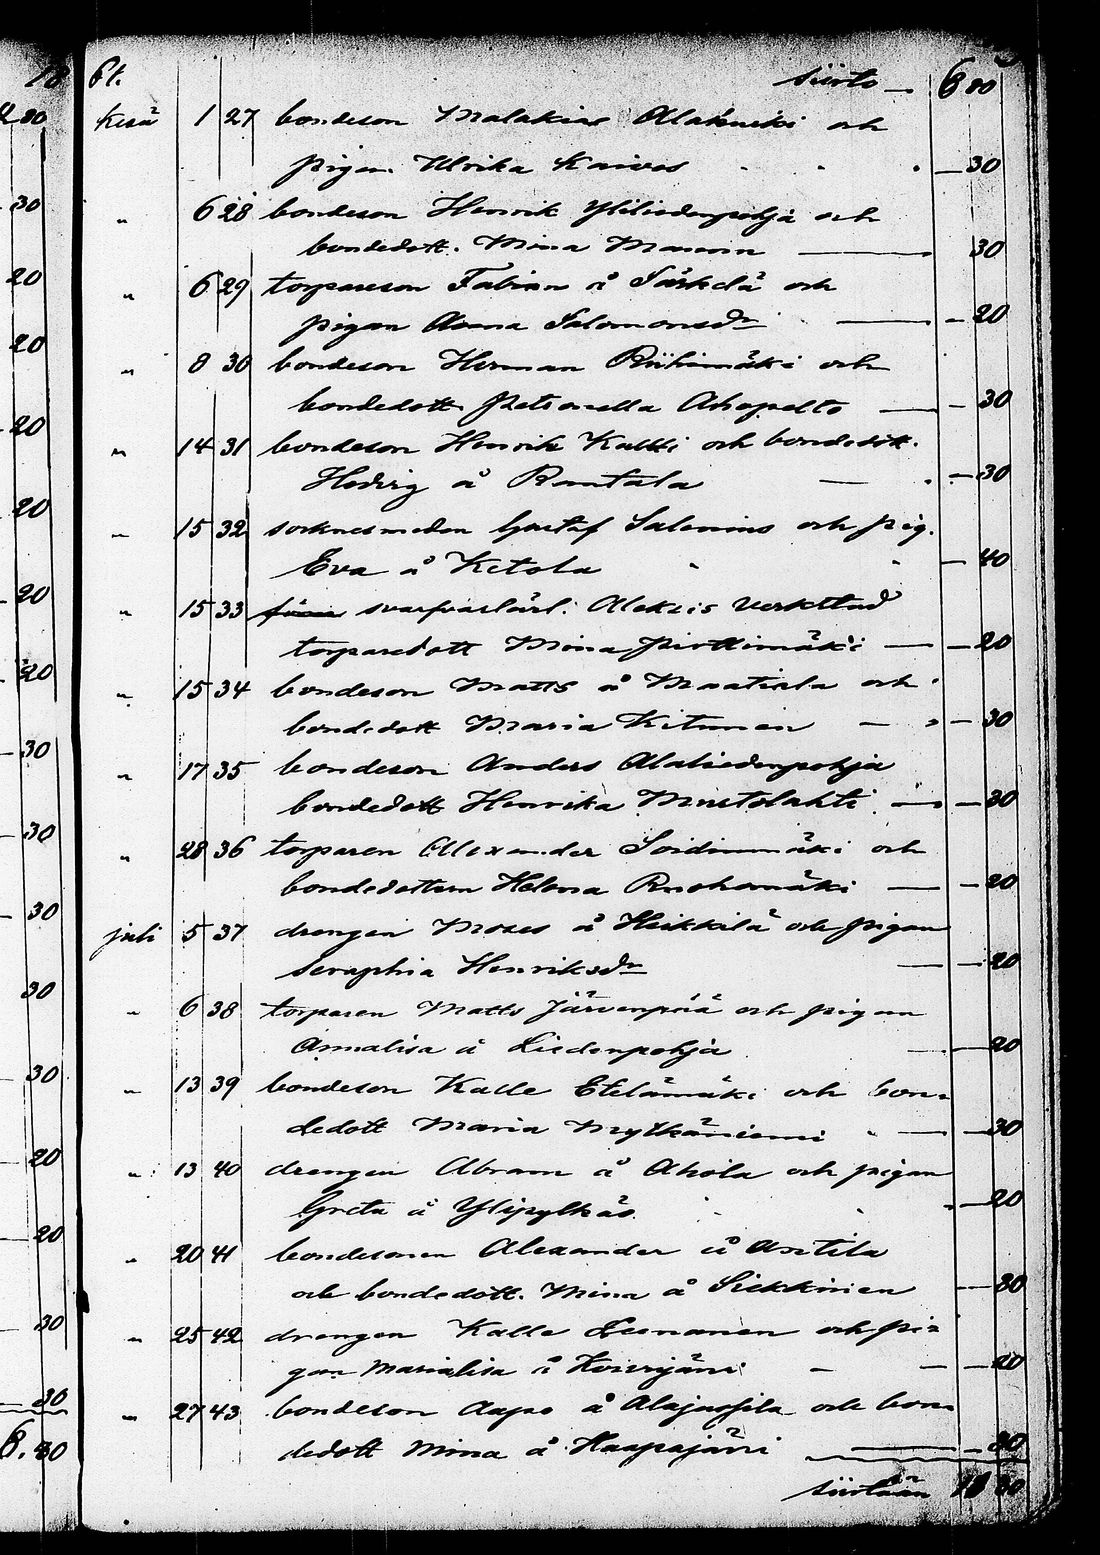 18
64.
siirto — 6 80
Kesä 1 27 bondeson Malakias Alatuuki och
pigan Ulrika Kaives — 30
" 6 28 bondeson Henrik Yliliedenpohja och
bondedott. Mina Mannin — 30
" 6 29 torpareson Fabian å Särkelä och
pigan Anna Salomonsdr — 20
" 8 30 bondeson Herman Riihimäki och
bondedott. Petronella Ahopelto — 30
" 14 31 bondeson Henrik Kaltti och bondedott.
Hedvig å Rantala — 30
" 15 32 socknesmeden Gustaf Salenius och pig.
Eva å Ketola — 40
" 15 33 svarfvarlärl. Aleksis Verkstad
torparedott Mina Pirttimäki — 20
" 15 34 bondeson Matts å Maatiala och
bondedott Maria Kitunen — 30
" 17 35 bondeson Anders Alaliedenpohja
bondedott Henrika Mustolahti — 30
" 28 36 torparen Alexander Soidinmäki och
bondedottern Helena Ruohomäki — 20
juli 5 37 drengen Moses å Heikkilä och pigan
Seraphia Henriksdr — 20
" 6 38 torparen Matts Järvenpää och pigan
Annalisa å Liedenpohja — 20
" 13 39 bondeson Kalle Etelämäki och bon-
dedott Maria Mytkäniemi — 30
" 13 40 drengen Abram å Ahola och pigan
Greta å Ylipylkäs — 20
" 20 41 bondesonen Alexander å Anttila
och bondedott. Mina å Siekkinen — 30
" 25 42 drengen Kalle Leenanen och pi-
gan Marialisa å Koivujärvi — 20
" 27 43 bondeson Aapo å Alajussila och bon-
dedott Mina å Haapajärvi — 30
siirtään 11 30